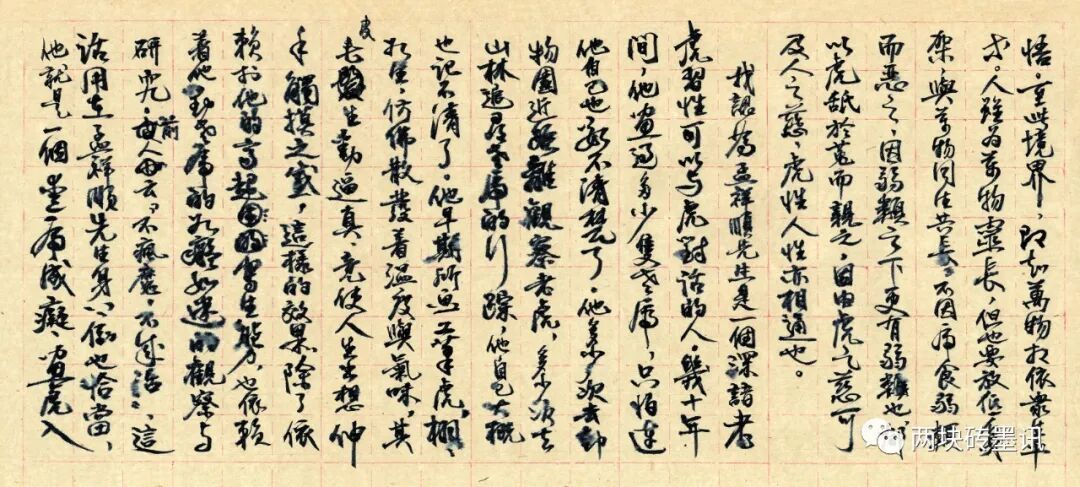 悟，至此境界，即知萬物相依眾平
也。人雖為萬物靈長，但也要放低
架，與萬物同生共長，不因虎食弱
而惡之，因弱類之下更有弱類也，
以虎舐於菟而親之，因由虎之慈可
及人之慈，虎性人性亦相通也。
我認為孟祥順先生是一個深諳老
虎習性可以与虎對話的人，幾十年
間，他畫過多少隻老虎，只怕連
他自己也數不清楚了，他多次去動
物園近距離觀察老虎，多次去
山林追尋老虎的行踪，他自己大概
也記不清了，他早期所畫工筆虎，栩栩
如生，仿佛散發着溫度與氣味，其
皮毛生動逼真，竟使人生生想伸
手觸摸之感，這樣的效果除了依
賴於他的高超的寫生能力，也依賴
着他對老虎的如癡如迷的觀察与
研究，前人曾云，不瘋魔，不成活，這
話用在孟祥順先生身上倒也恰當，
他就是一個畫虎成癡，畫虎入
两块砖墨讯